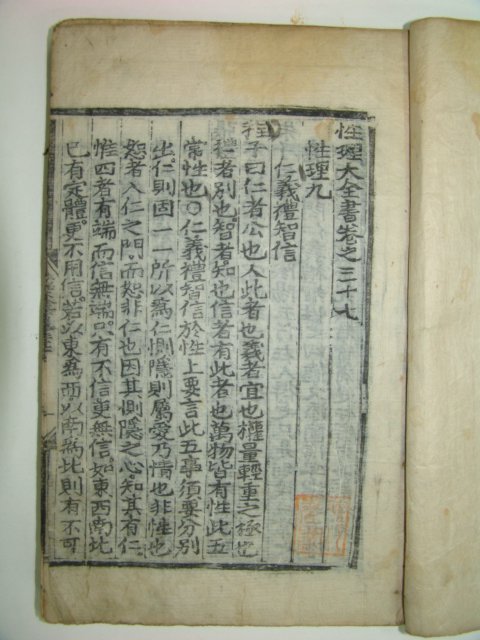 性理大全書卷之三十七
性理九
仁義禮智信
程子曰仁者公也人此者也義者宜也權量輕重之極也
禮者別也智者知也信者有此者也萬物皆有性此五
常性也〇仁義禮智信於性上要言此五事須要分別
出仁則固一一所以爲仁惻隱則屬愛乃情也非性也
恕者入仁之門而恕非仁也因其惻隱之心知其有仁
惟四者有端而信無端只有不信更無信如東西南北
已有定體更不用信若以東爲西以南爲北則有不可